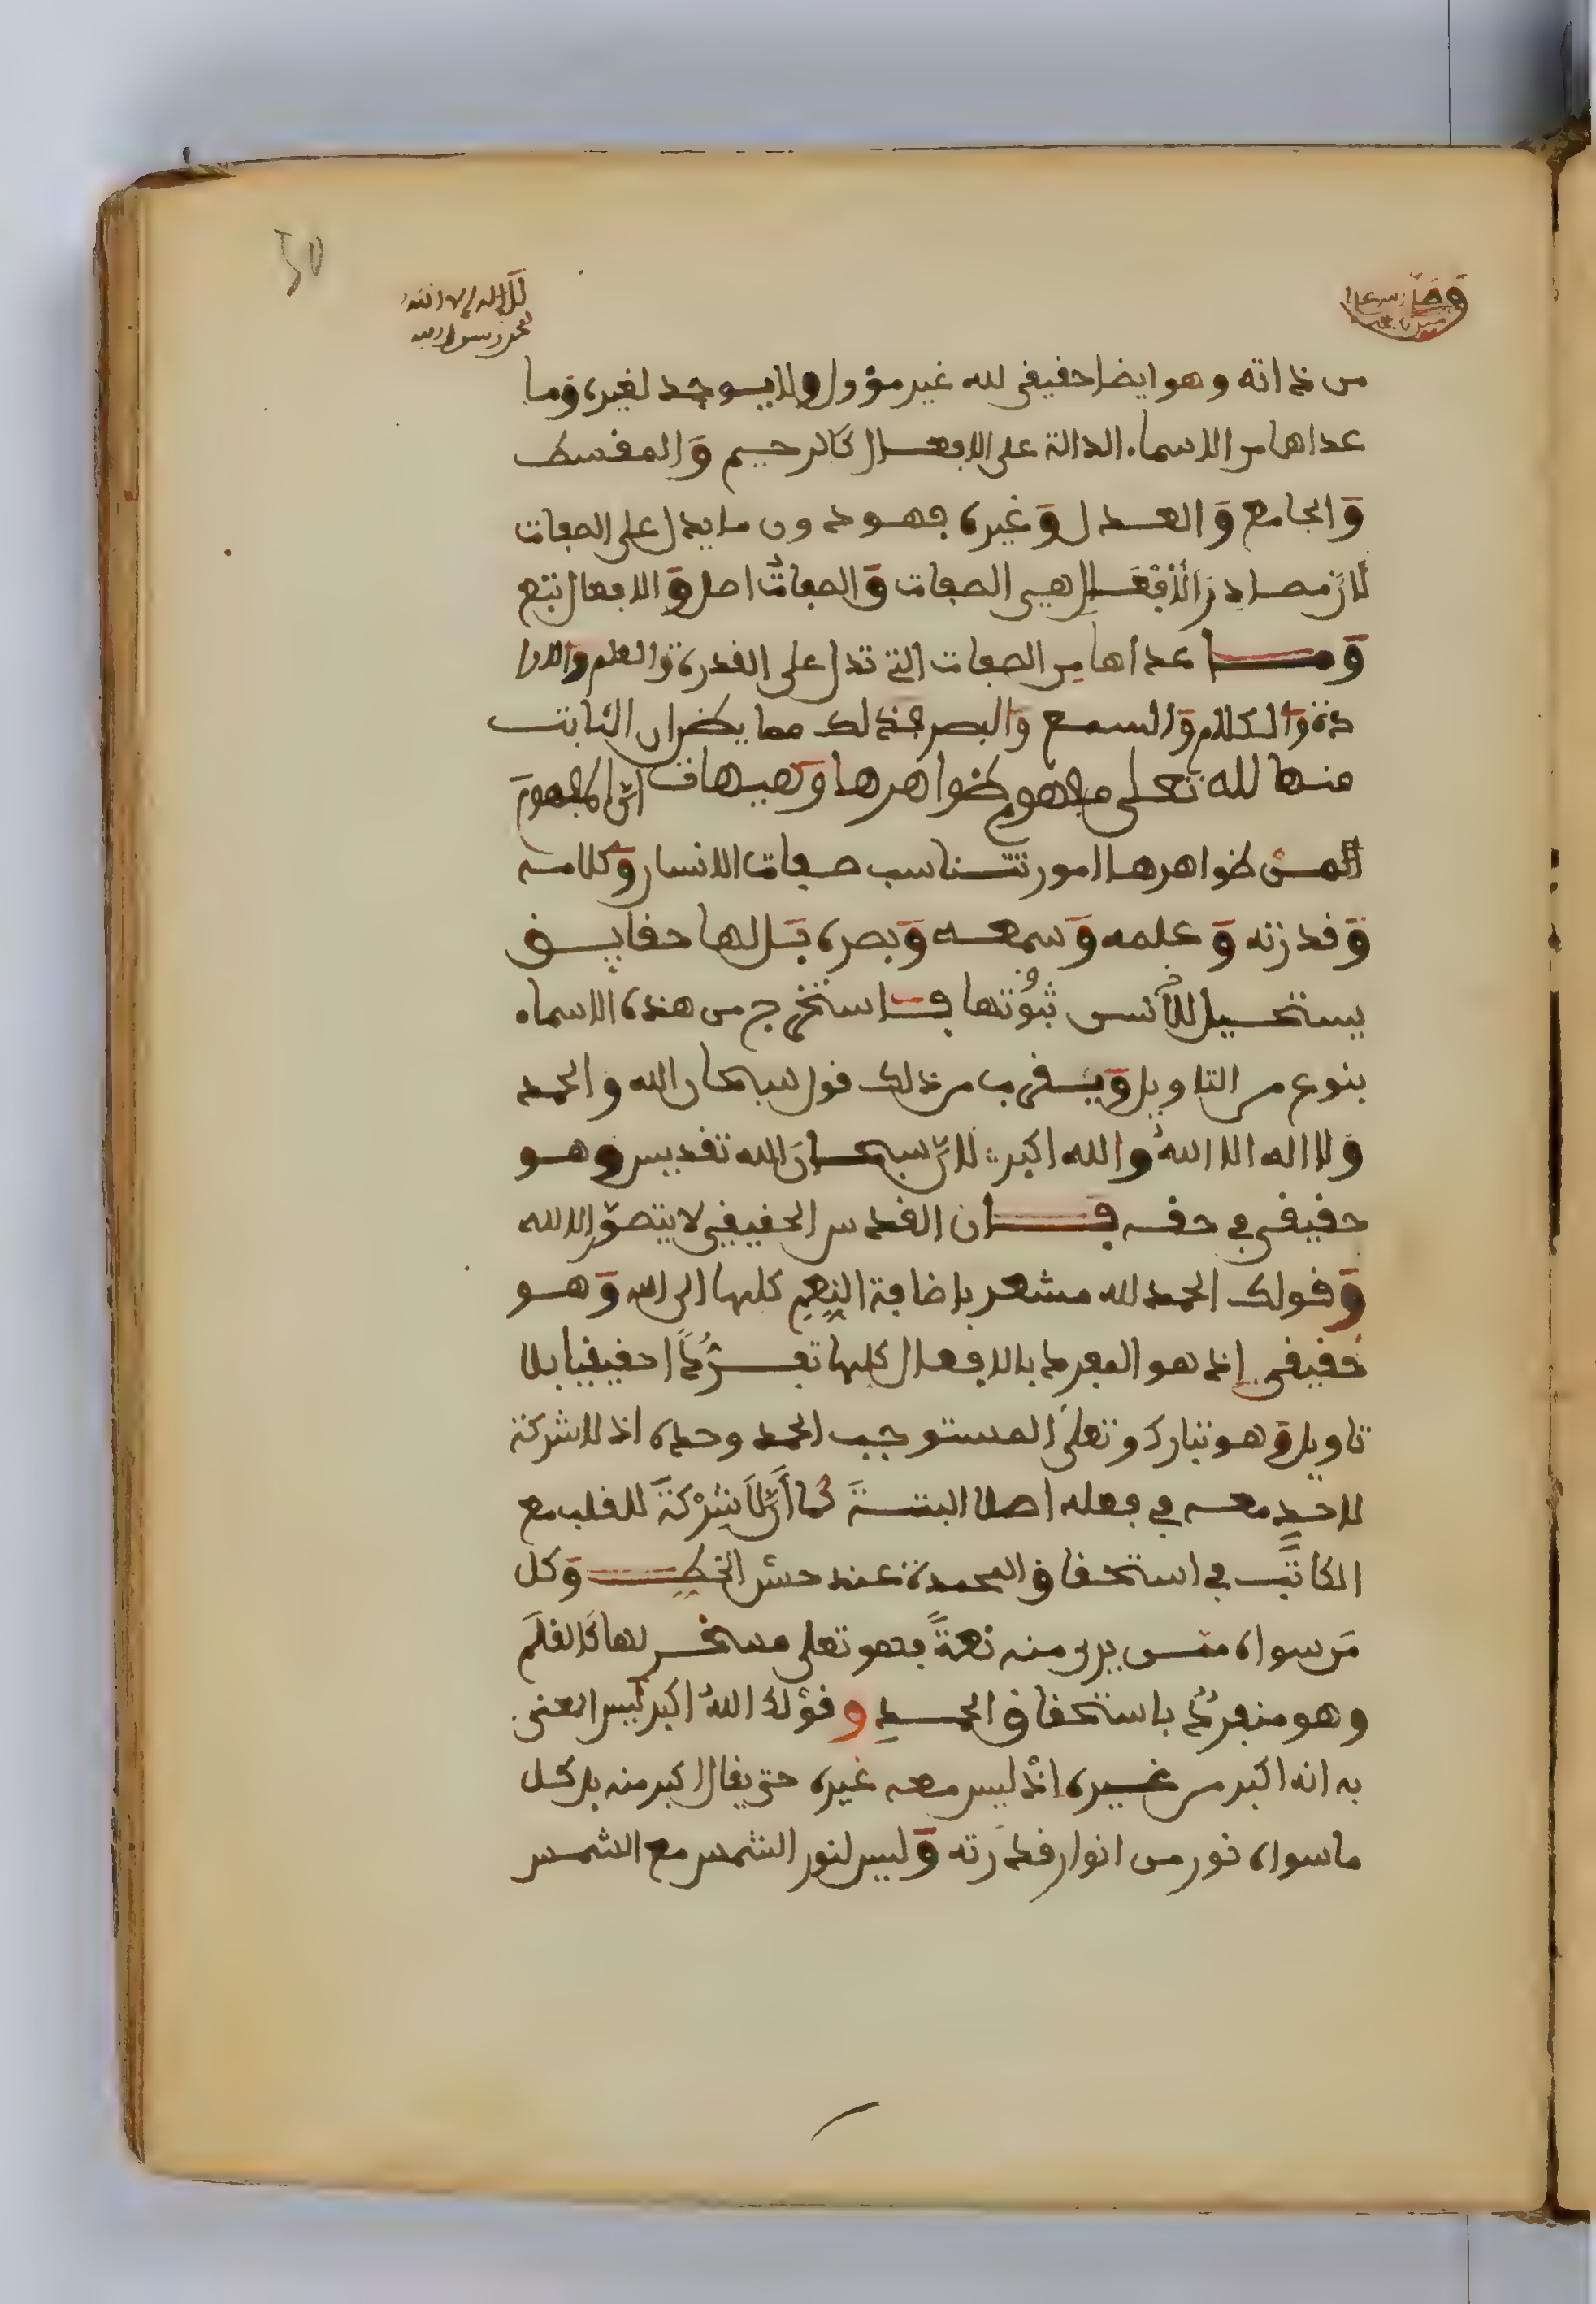 لا اله الا الله
محمد رسول الله
من ذاته وهو ايضا حقيقي لله غير مؤول ولا يوجد لغيره وما
عداها من الاسماء الدالة على الافعال كالرحيم والمقسط
والجامع والعدل وغيره فهو دون ما يدل على الصفات
لان مصادر الأفعال هي الصفات والصفات اصل والافعال تتبع
وما عداها من الصفات التي تدل على القدرة والعلم والارا
دة والكلام والسمع والبصر فذلك مما يظن ان الثابت
منها لله تعلى مفهوم ظواهرها وهيهات ان المفهوم
من ظواهرها امور تتناسب صفات الانسان وكلامه
وقدرته وعلمه وسمعه وبصره بل لها حقايق
يستحيل للانس ثبوتها فاستخرج من هذه الاسماء
بنوع من التاويل ويقرب من ذلك قول سبحان الله والحمد
ولا اله الا الله والله اكبر لان سبحان الله تقديس وهو
حقيقي في حقه فان القدس الحقيقي لا يتصور الا لله
وقولك الحمد لله مشعر باضافة النعم كلها الى الله وهو
حقيقي إذ هو المفرد بالافعال كلها تفردا حقيقيا بلا
تاويل وهو تبارك وتعلى المستوجب الحمد وحده اذ لا شركة
لاحد معه في فعله اصلا البتة كما أن لا شركة للقلب مع
الكاتب في استحقاق المحمدة عند حسن الخط وكل
من سواه ممن يرى منه نعمة فهو تعلى مسخر لها كالقلم
وهو منفرد باستحقاق الحمد وقولك الله اكبر ليس المعنى
به انه اكبر من غيره اذ ليس معه غيره حتى يقال اكبر منه بل كل
ما سواه نور من انوار قدرته وليس لنور الشمس مع الشمس